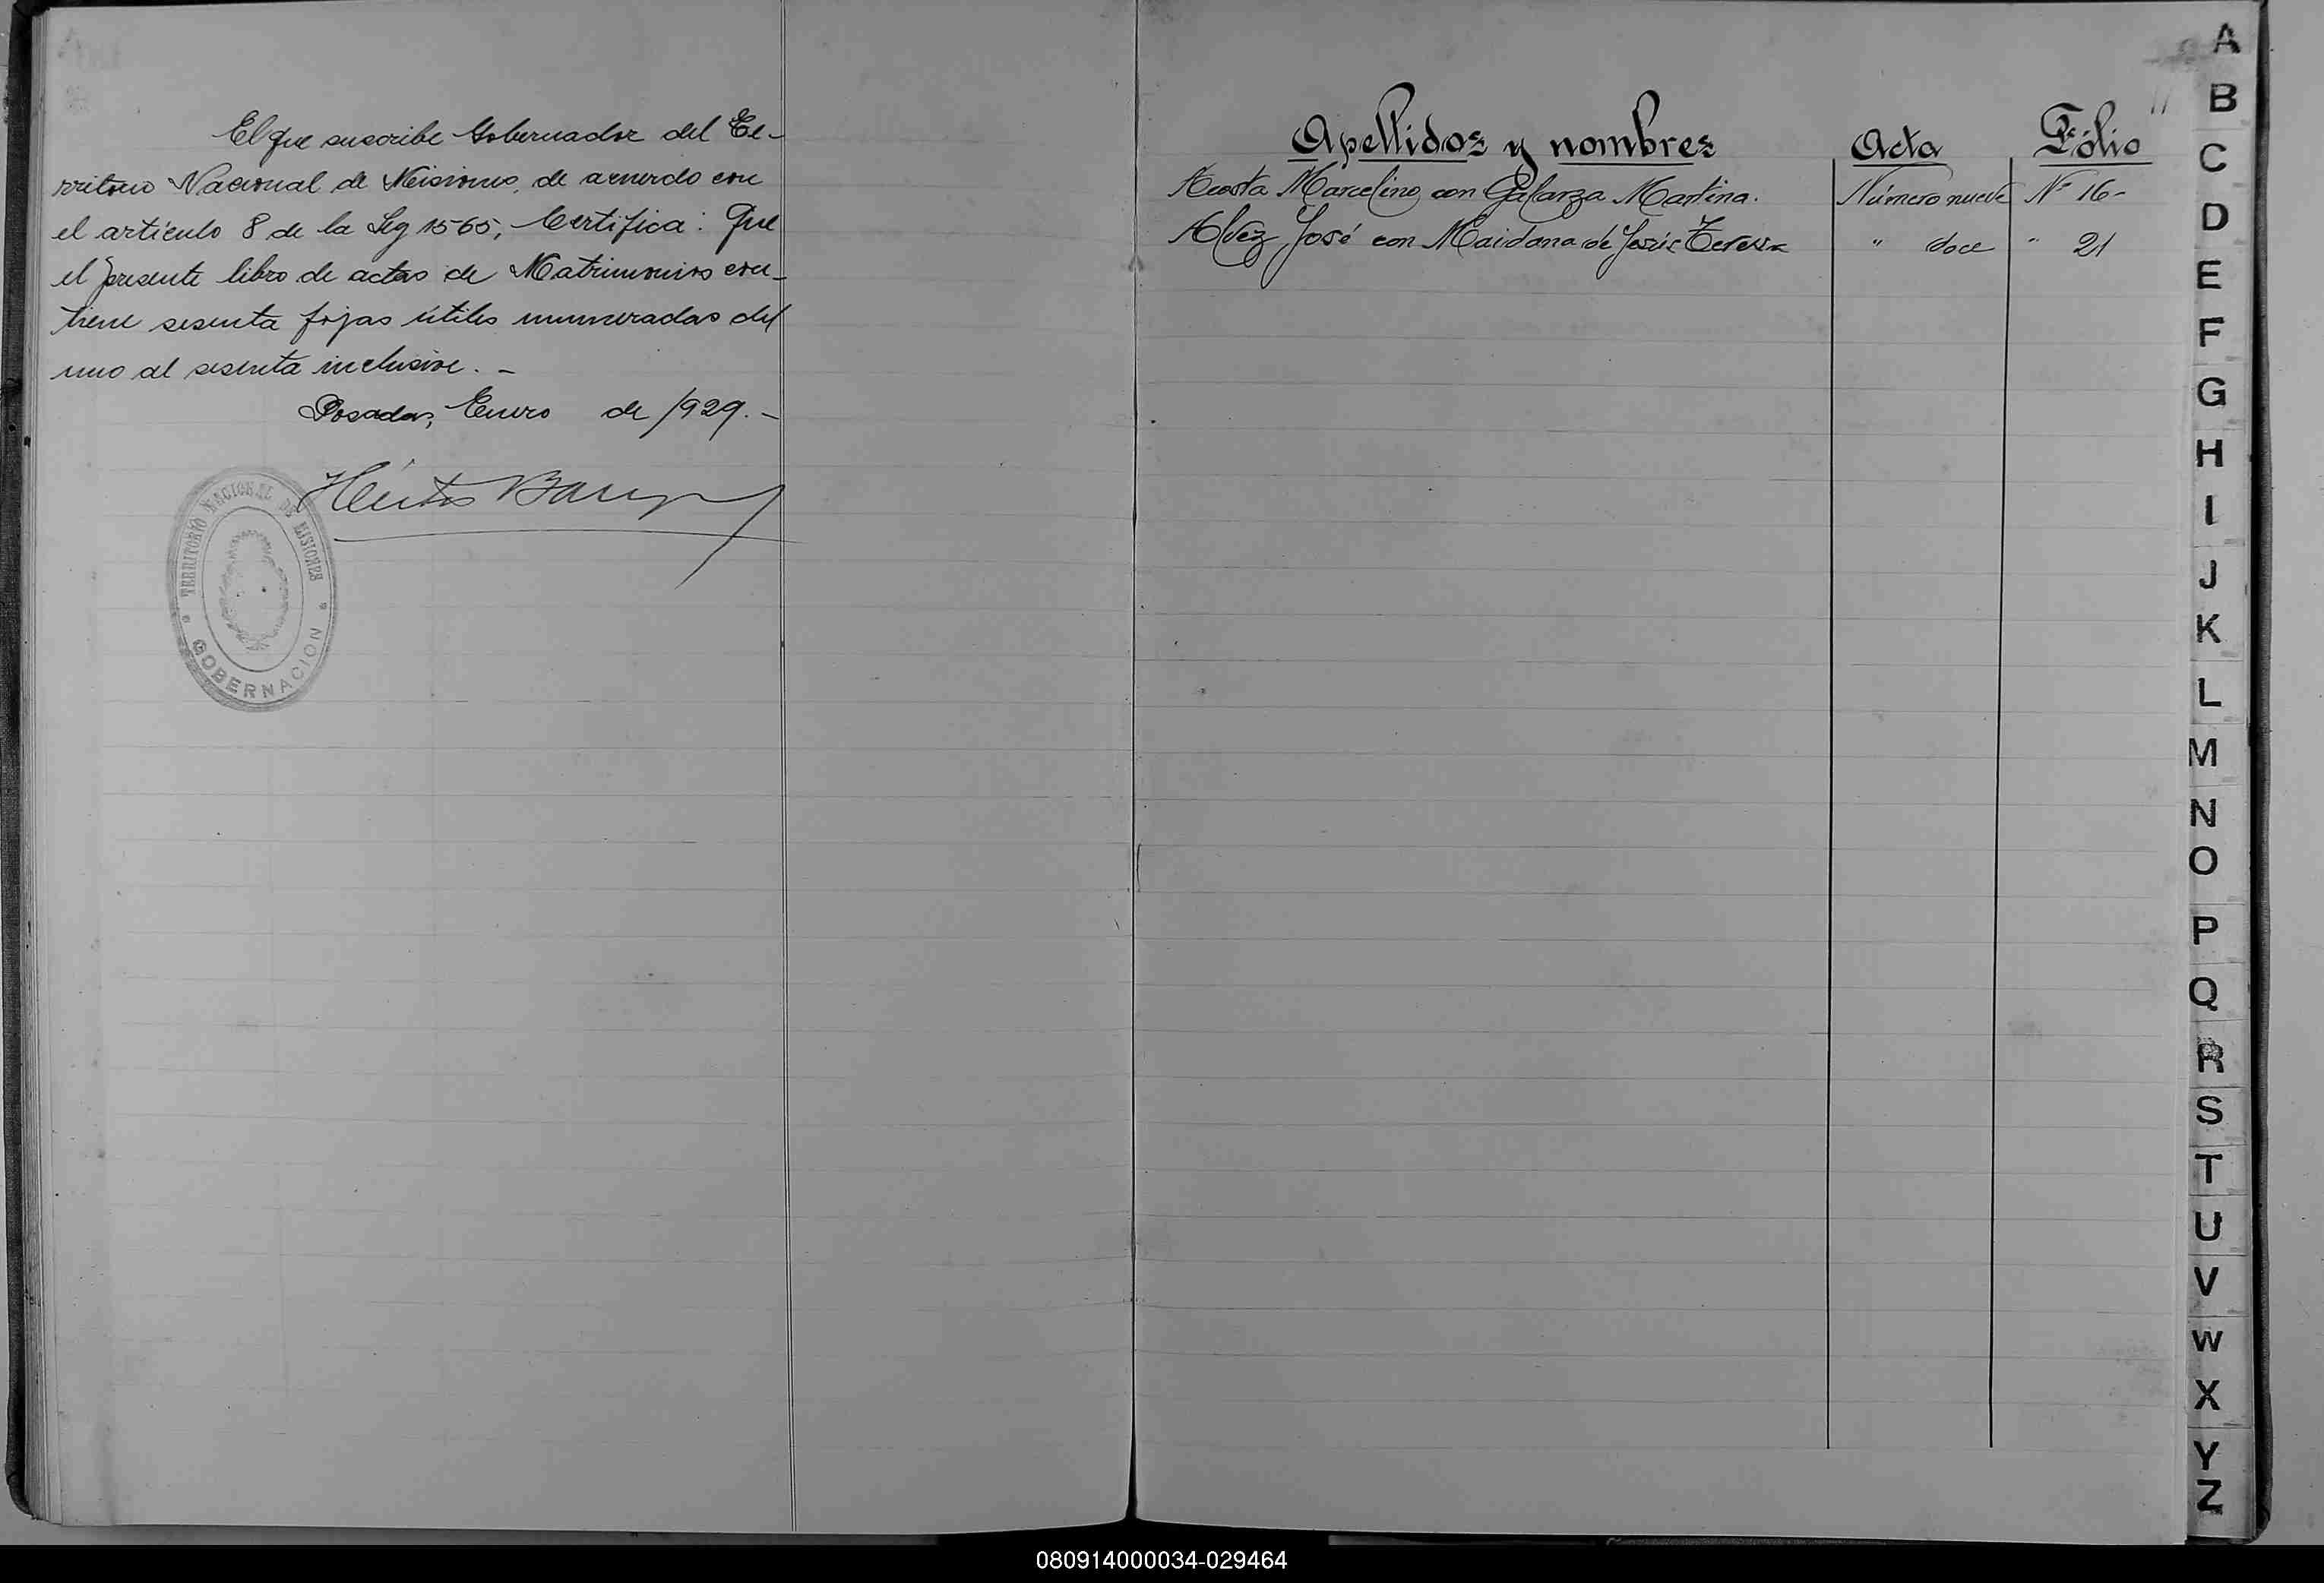 El que suscribe Gobernador del Te-
rritorio Nacional de Misiones, de acuerdo con
el artículo 8 de la Ley 1565, Certifica: Que
el presente libro de actas de Matrimonios con-
tiene sesenta fojas útiles numeradas del
uno al sesenta inclusive. -
Posadas, Enero de 1929. -
Héctor Barreyro
TERRITORIO NACIONAL DE MISIONES
GOBERNACION
Apellidos y nombres Acta Fólio
Acosta Marcelino con Galarza Martina. Número nueve Nº 16-
Alvez José con Maidana de Jesús Teresa " doce " 21
A
B
C
D
E
F
G
H
I
J
K
L
M
N
O
P
Q
R
S
T
U
V
W
X
Y
Z
080914000034-029464